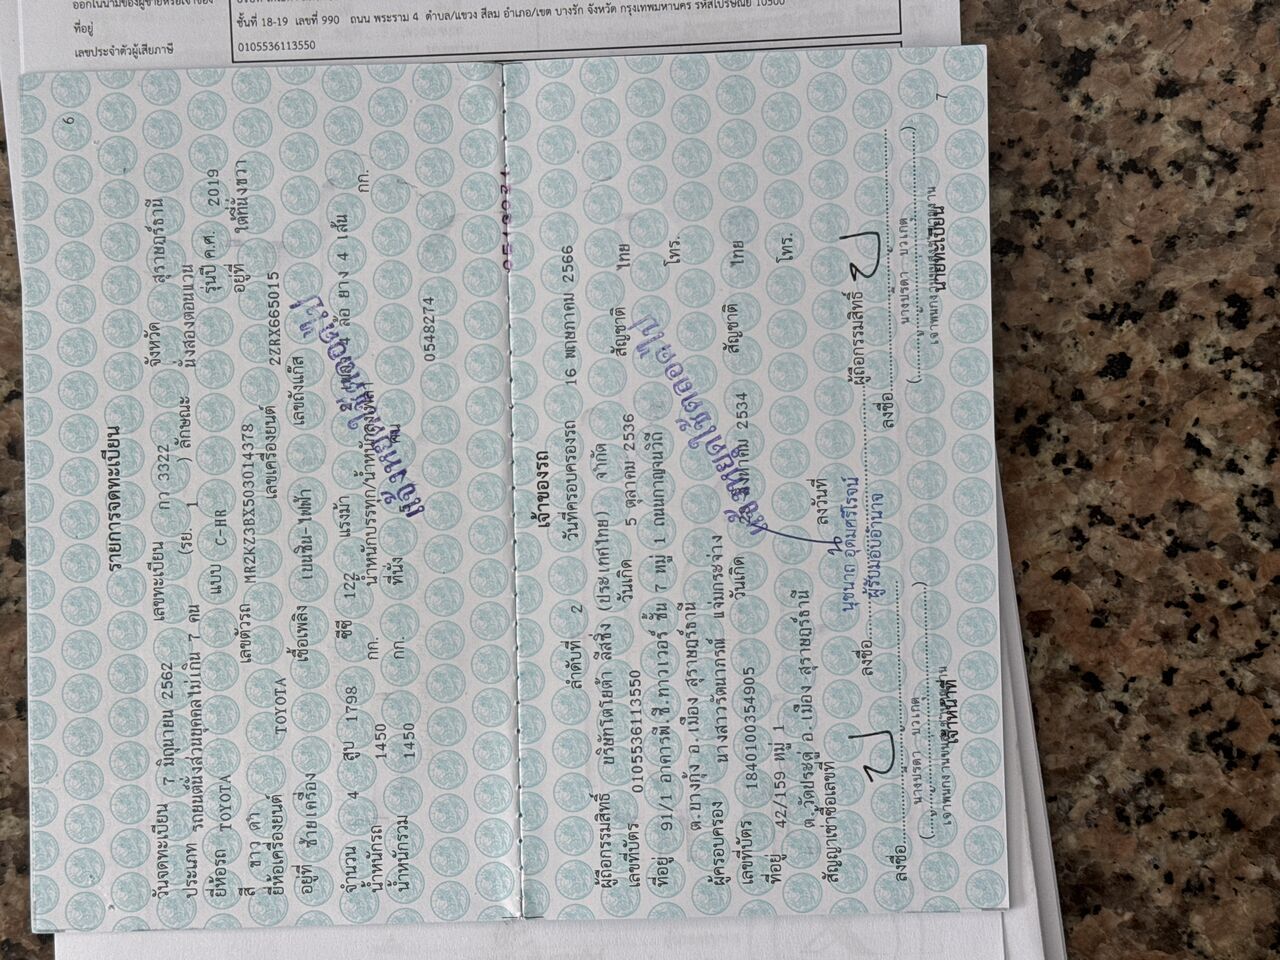 ออกในนามของผู้ขายหรือเจ้าของ
ที่อยู่ ชั้นที่ 18-19 เลขที่ 990 ถนน พระราม 4 ตำบล/แขวง สีลม อำเภอ/เขต บางรัก จังหวัด กรุงเทพมหานคร รหัสไปรษณีย์ 10500
เลขประจำตัวผู้เสียภาษี 0105536113550
6
รายการจดทะเบียน
วันจดทะเบียน 7 มิถุนายน 2562 เลขทะเบียน กว 3322 จังหวัด สุราษฎร์ธานี
ประเภท รถยนต์นั่งส่วนบุคคลไม่เกิน 7 คน (รย. 1 ) ลักษณะ นั่งสองตอนแวน
ยี่ห้อรถ TOYOTA แบบ C-HR รุ่นปี ค.ศ. 2019
สี ขาว ดำ เลขตัวรถ MR2KZ3BX503014378 อยู่ที่ ใต้ที่นั่งขวา
ยี่ห้อเครื่องยนต์ TOYOTA เลขเครื่องยนต์ 2ZRX665015
อยู่ที่ ซ้ายเครื่อง เชื้อเพลิง เบนซิน-ไฟฟ้า เลขถังแก๊ส
จำนวน 4 สูบ 1798 ซีซี 122 แรงม้า 2 เพลา 4 ล้อ ยาง 4 เส้น
น้ำหนักรถ 1450 กก. น้ำหนักบรรทุก/น้ำหนักลงเพลา กก.
น้ำหนักรวม 1450 กก. ที่นั่ง คน
แจ้งหยุดใช้ตลอดไป
0548274
เจ้าของรถ
ลำดับที่ 2 วันที่ครอบครองรถ 16 พฤษภาคม 2566
ผู้ถือกรรมสิทธิ์ บริษัทโตโยต้า ลีสซิ่ง (ประเทศไทย) จำกัด
เลขที่บัตร 0105536113550 วันเกิด 5 ตุลาคม 2536 สัญชาติ ไทย
ที่อยู่ 91/1 อาคารพี.ซี.ทาวเวอร์ ชั้น 7 หมู่ 1 ถนนกาญจนวิถี โทร.
ต.บางกุ้ง อ.เมือง สุราษฎร์ธานี
ผู้ครอบครอง นางสาววรัตนาภรณ์ แจ่มกระจ่าง
เลขที่บัตร 1840100354905 วันเกิด สิงหาคม 2534 สัญชาติ ไทย
ที่อยู่ 42/159 หมู่ 1 โทร.
ต.วัดประดู่ อ.เมือง สุราษฎร์ธานี
แจ้งหยุดใช้ตลอดไป
สัญญาเช่าซื้อเลขที่ ลงวันที่
นุชนาถ อุดมศรีโรจน์
ผู้รับมอบอำนาจ
ลงชื่อ ผู้ถือกรรมสิทธิ์
ลงชื่อ ลงชื่อ
(นางปรีดา บัวเกตุ) (นางปรีดา บัวเกตุ)
เจ้าหน้าที่ นายทะเบียน
7